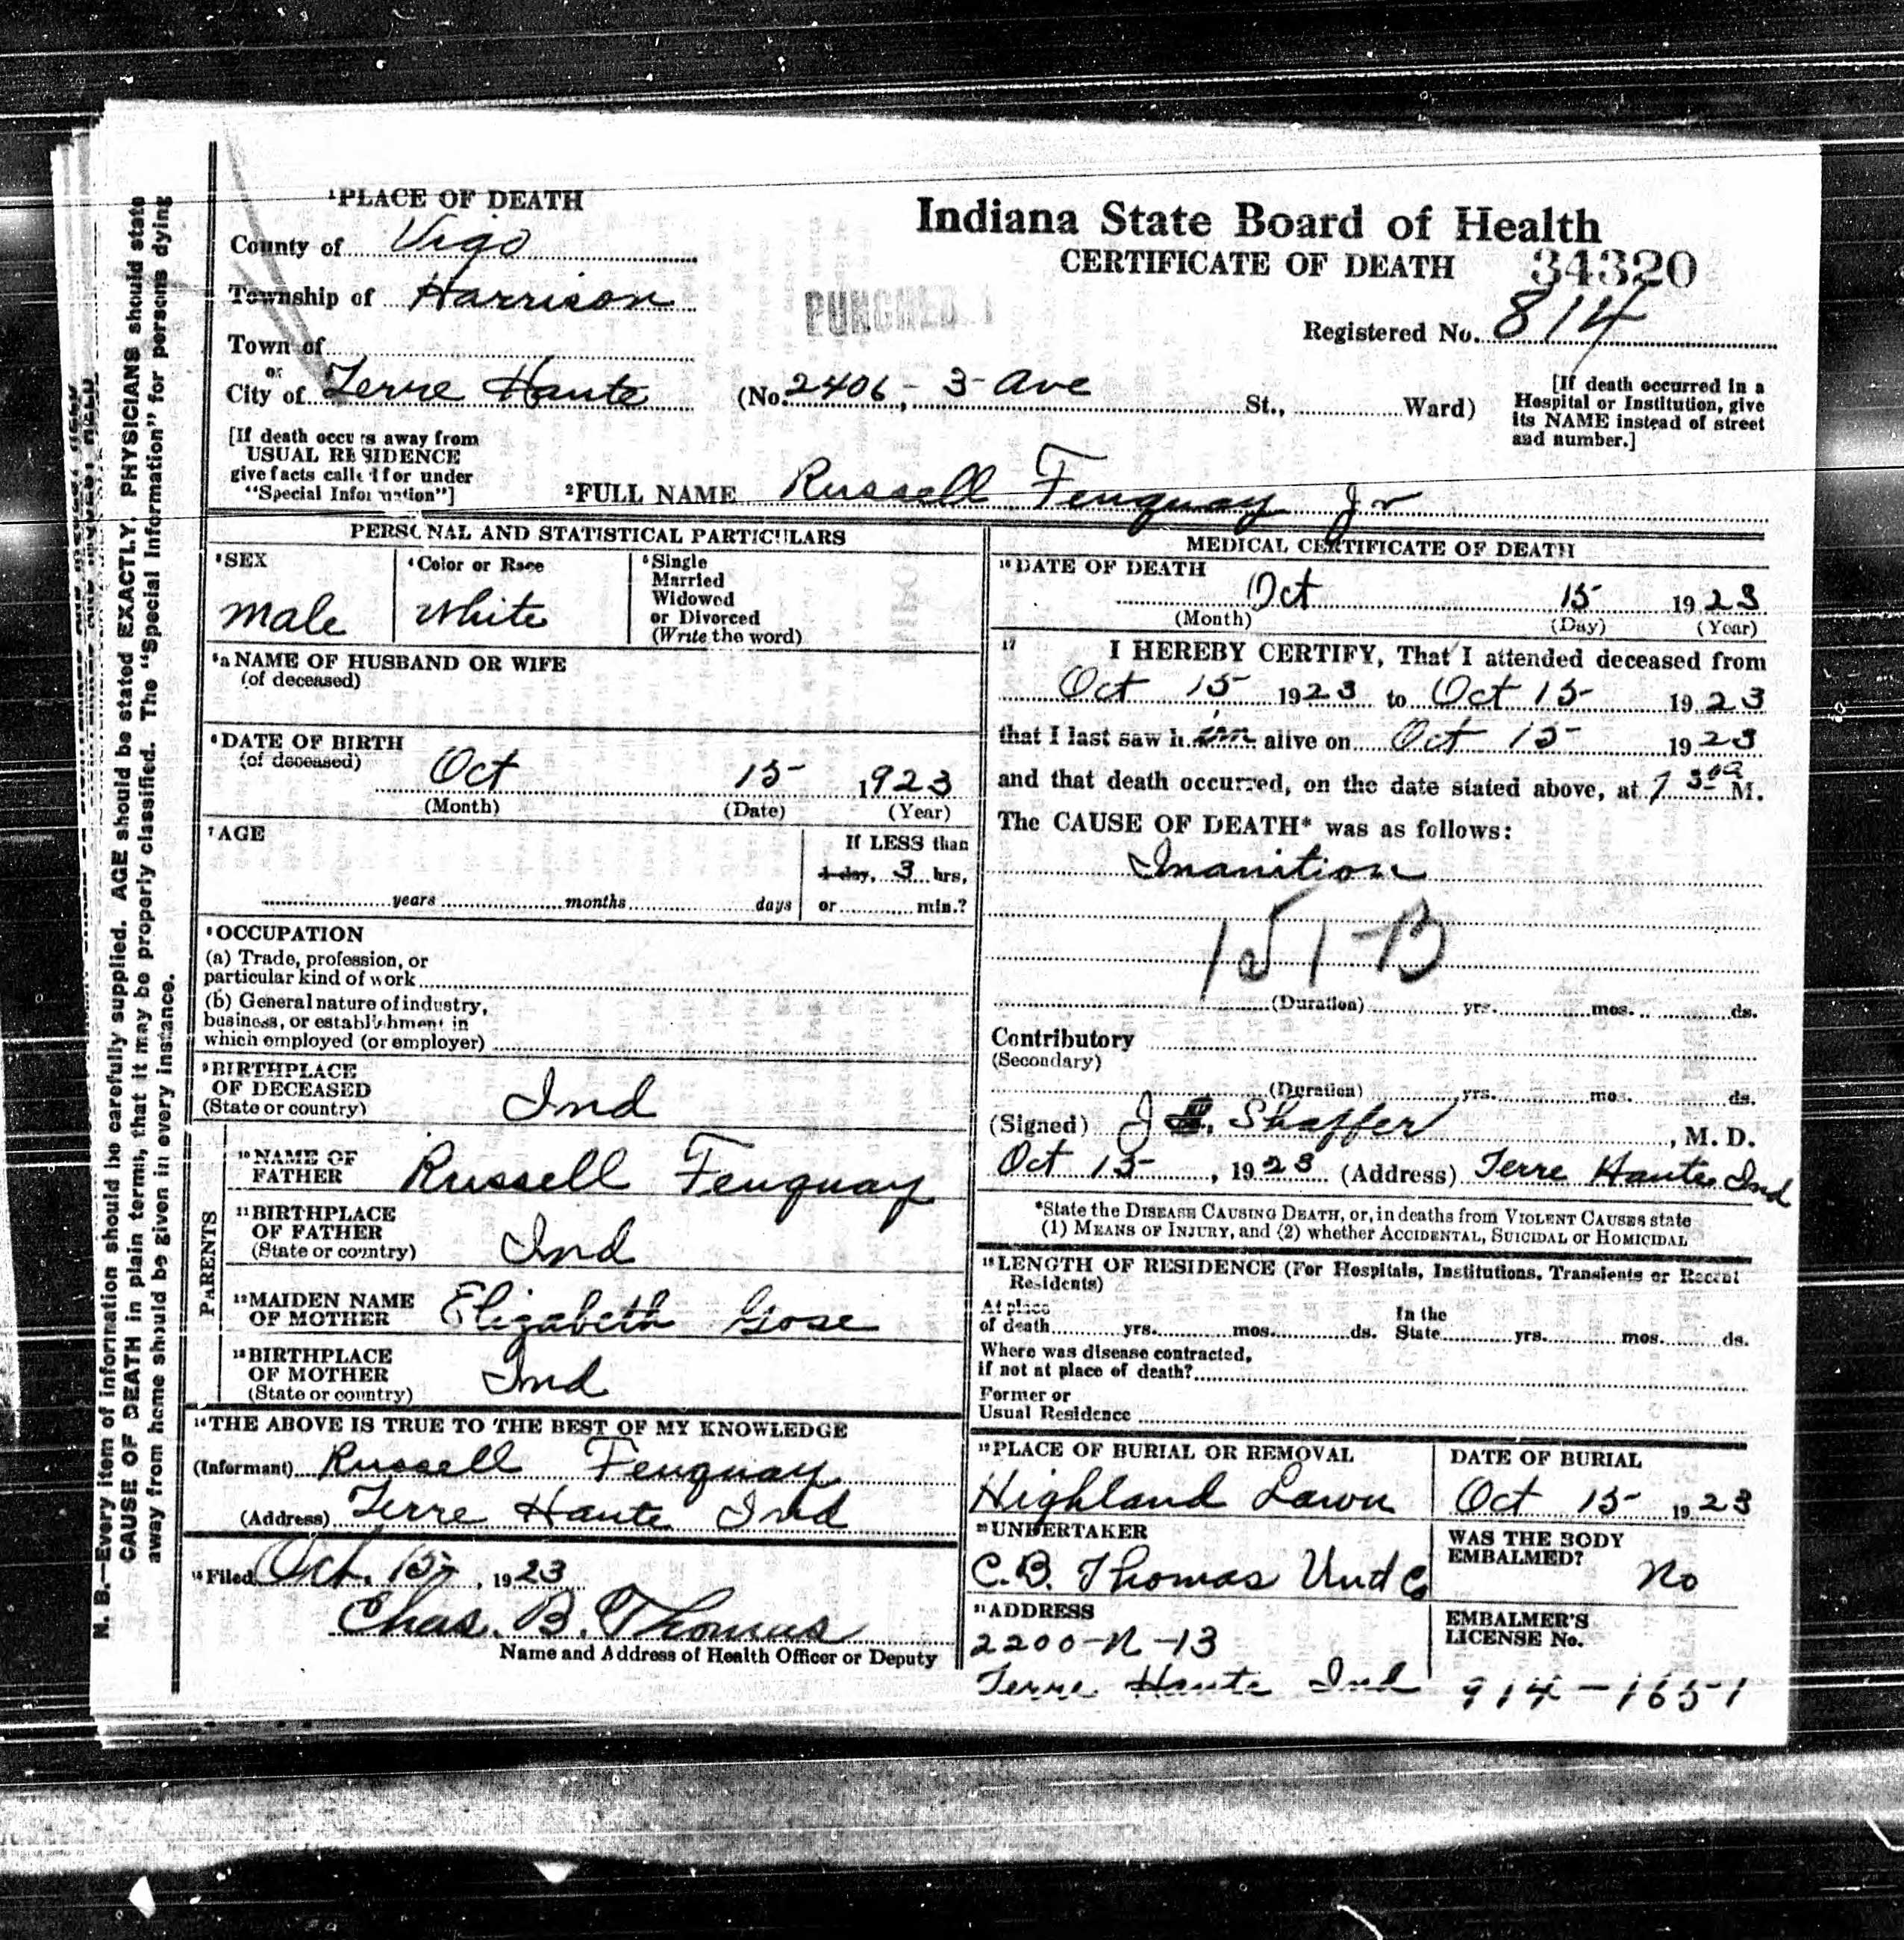 N. B.—Every item of information should be carefully supplied. AGE should be stated EXACTLY. PHYSICIANS should state
CAUSE OF DEATH in plain terms, that it may be properly classified. The "Special Information" for persons dying
away from home should be given in every instance.
¹PLACE OF DEATH
County of Vigo
Township of Harrison
Town of
or
City of Terre Haute (No. 2406, - 3 - Ave St., Ward)
Indiana State Board of Health
CERTIFICATE OF DEATH 34320
PUNCHED
Registered No. 814
[If death occurred in a
Hospital or Institution, give
its NAME instead of street
and number.]
[If death occurs away from
USUAL RESIDENCE
give facts called for under
"Special Information"]
²FULL NAME Russell Fenquay Jr
PERSONAL AND STATISTICAL PARTICULARS
³SEX
male
⁴Color or Race
White
⁵Single
Married
Widowed
or Divorced
(Write the word)
⁵a NAME OF HUSBAND OR WIFE
(of deceased)
⁶DATE OF BIRTH
(of deceased)
Oct 15 1923
(Month) (Date) (Year)
⁷AGE
If LESS than
1 day, 3 hrs,
years months days or min.?
⁸OCCUPATION
(a) Trade, profession, or
particular kind of work
(b) General nature of industry,
business, or establishment in
which employed (or employer)
⁹BIRTHPLACE
OF DECEASED
(State or country)
Ind
PARENTS
¹⁰NAME OF
FATHER
Russell Fenquay
¹¹BIRTHPLACE
OF FATHER
(State or country)
Ind
¹²MAIDEN NAME
OF MOTHER
Elizabeth Gose
¹³BIRTHPLACE
OF MOTHER
(State or country)
Ind
¹⁴THE ABOVE IS TRUE TO THE BEST OF MY KNOWLEDGE
(Informant) Russell Fenquay
(Address) Terre Haute Ind
¹⁵Filed Oct. 15, 1923
Chas. B. Thomas
Name and Address of Health Officer or Deputy
MEDICAL CERTIFICATE OF DEATH
¹⁶DATE OF DEATH
Oct 15 1923
(Month) (Day) (Year)
¹⁷ I HEREBY CERTIFY, That I attended deceased from
Oct 15 1923 to Oct 15 1923
that I last saw h im alive on Oct 15 1923
and that death occurred, on the date stated above, at 7 30 a M.
The CAUSE OF DEATH* was as follows:
Inanition
151-B
(Duration) yrs. mos. ds.
Contributory
(Secondary)
(Duration) yrs. mos. ds.
(Signed) J Shaffer, M. D.
Oct 15, 1923 (Address) Terre Haute Ind
*State the DISEASE CAUSING DEATH, or, in deaths from VIOLENT CAUSES state
(1) MEANS OF INJURY, and (2) whether ACCIDENTAL, SUICIDAL or HOMICIDAL
¹⁸LENGTH OF RESIDENCE (For Hospitals, Institutions, Transients or Recent
Residents)
At place
of death yrs. mos. ds.
In the
State yrs. mos. ds.
Where was disease contracted,
if not at place of death?
Former or
Usual Residence
¹⁹PLACE OF BURIAL OR REMOVAL
Highland Lawn
DATE OF BURIAL
Oct 15 1923
²⁰UNDERTAKER
C.B. Thomas Und Co
WAS THE BODY
EMBALMED?
No
²¹ADDRESS
2200-N-13
Terre Haute Ind
EMBALMER'S
LICENSE No.
914-1651